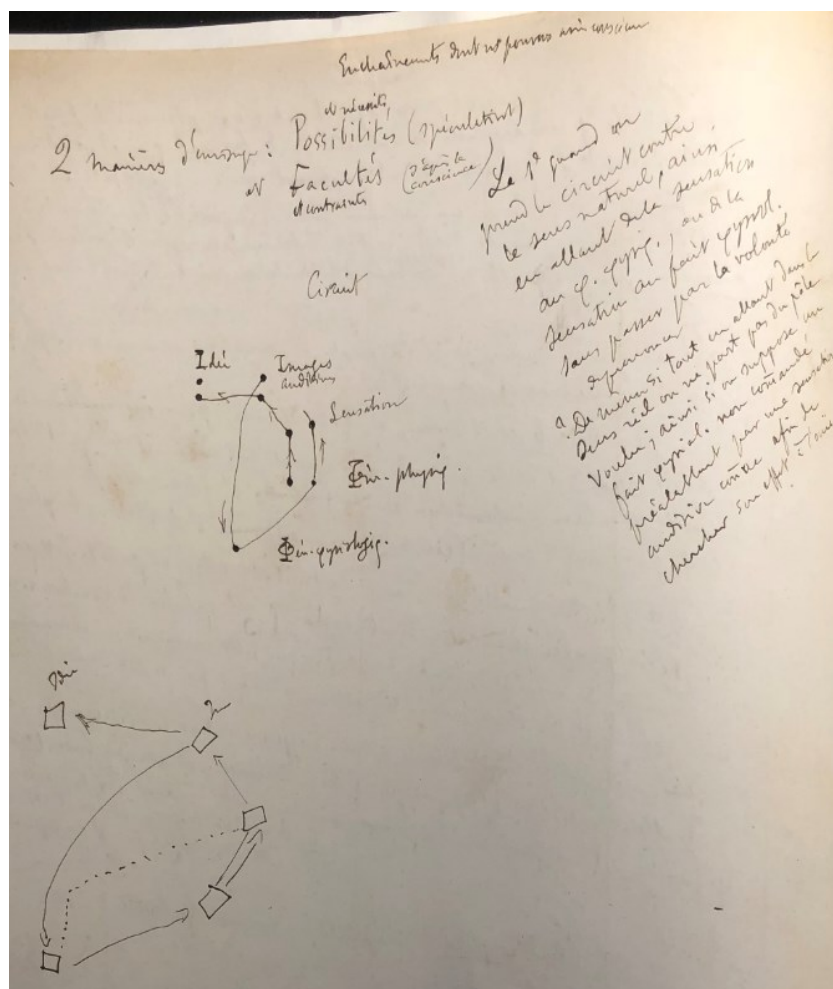 Enchaînements dont ns pouvons avoir conscience
et nécessités
2 manières d'envisager : Possibilités (spéculativt)
et Facultés (d'après la conscience)
et contraintes
Le 1° quand on
prend le circuit contre
le sens naturel, ainsi
en allant de la sensation
au φ. φysiq., ou de la
sensation au fait φysiol.
sans passer par la volonté
de prononcer
2. De même si tout en allant dans le
sens réel on ne part pas du pôle
voulu ; ainsi si on suppose un
fait φysiol. non comandé
préalablemt par une sensation
auditive connue afin de
chercher son effet à l'ouïe
Circuit
Idée
Images
auditives
Sensation
Φén. physiq.
Φén. φysiologiq.
Idée